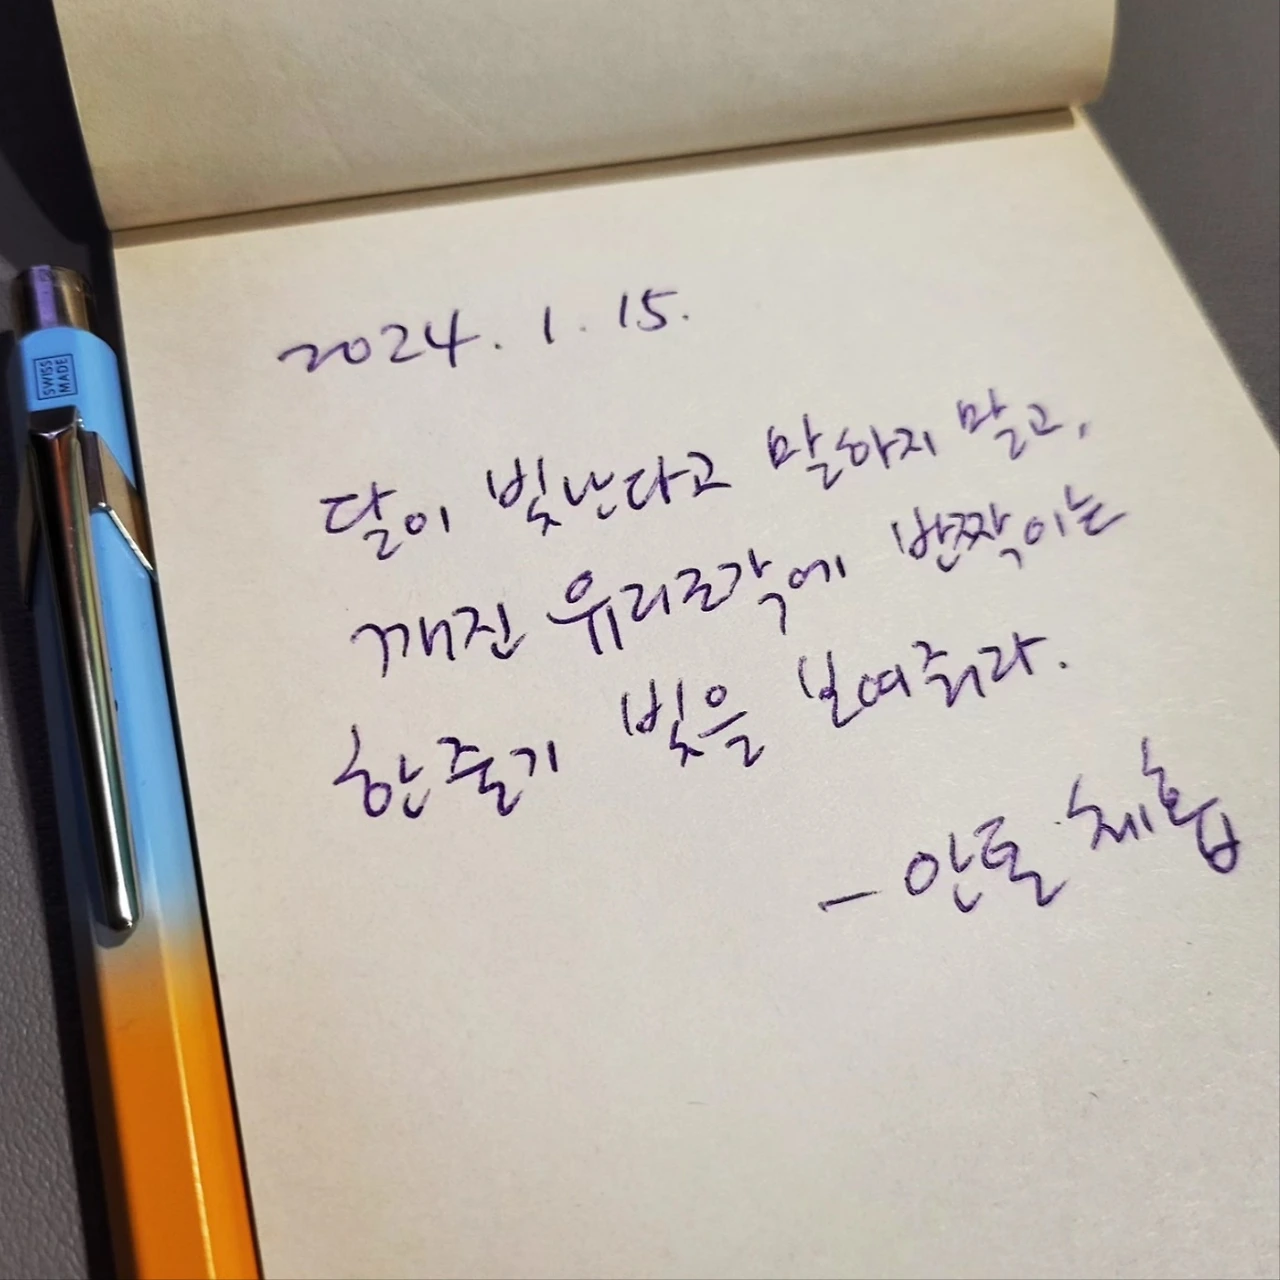 2024. 1. 15.
달이 빛난다고 말하지 말고,
깨진 유리조각에 반짝이는
한줄기 빛을 보여줘라.
- 안톤 체홉
SWISS
MADE